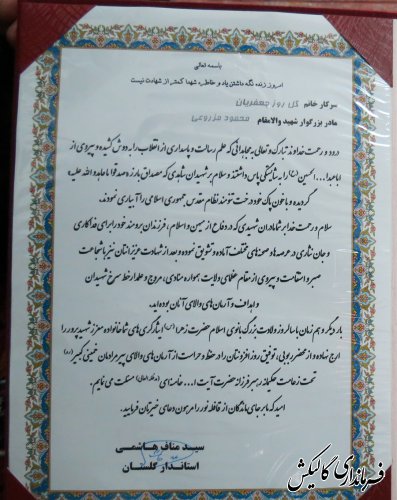 باسمه تعالی
امروز زنده نگه داشتن یاد و خاطره شهدا کمتر از شهادت نیست
سرکار خانم گل روز جعفریان
مادر بزرگوار شهید والامقام محمود مزروعی
درود و رحمت خداوند تبارک و تعالی به مجاهدانی که علم رسالت و پاسداری از انقلاب را به دوش کشیده و پیروی از
اباعبدا... الحسین (ع) را به شایستگی پاس داشتند و سلام بر شهیدان شاهدی که مصداق بارز «صدقوا ما عاهدوا الله علیه»
گردیده و با خون پاک خود درخت تنومند نظام مقدس جمهوری اسلامی را آبیاری نمودند.
سلام و رحمت خدا بر شما مادران شهیدی که در دفاع از میهن و اسلام، فرزندان برومند خود را برای فداکاری
و جان نثاری در عرصه ها و صحنه های مختلف آماده و تشویق نموده و بعد از شهادت عزیزانتان نیز با شجاعت
صبر و استقامت و پیروی از مقام عظمای ولایت همواره منادی، مروج و علمدار خط سرخ شهیدان
و اهداف و آرمان های والای آنان بوده اید.
بار دیگر و هم زمان با سالروز ولادت بزرگ بانوی اسلام حضرت زهرا (س) ایثارگری های شما خانواده معزز شهید پرور را
ارج نهاده و از محضر ربوبی، توفیق روز افزونتان را در حفظ و حراست از آرمان های والای پیر مرادمان خمینی کبیر (ره)
تحت زعامت حکیمانه رهبر فرزانه حضرت آیت ا... خامنه ای (مدظله العالی) مسئلت می نمایم.
امید که ما بر جای ماندگان از قافله نور را مرهون دعای خیرتان فرمایید.
سید مناف هاشمی
استاندار گلستان
فرمانداری گالیکش